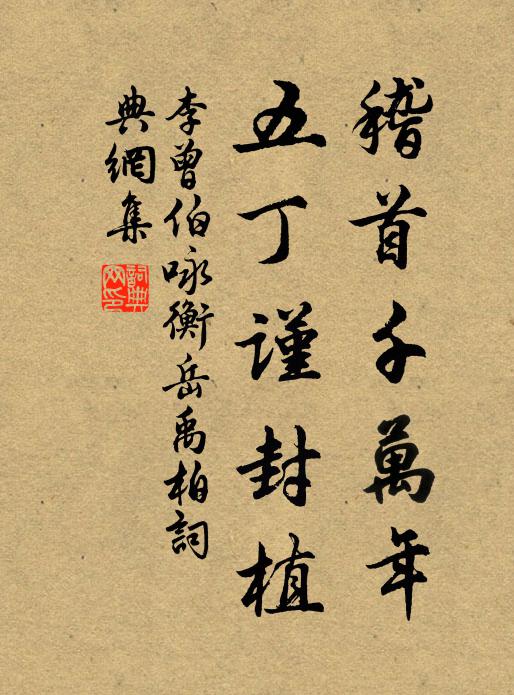 稽首千萬年
五丁謹封植
李曾伯咏衡岳禹柏詞
典網集
詞典
网印